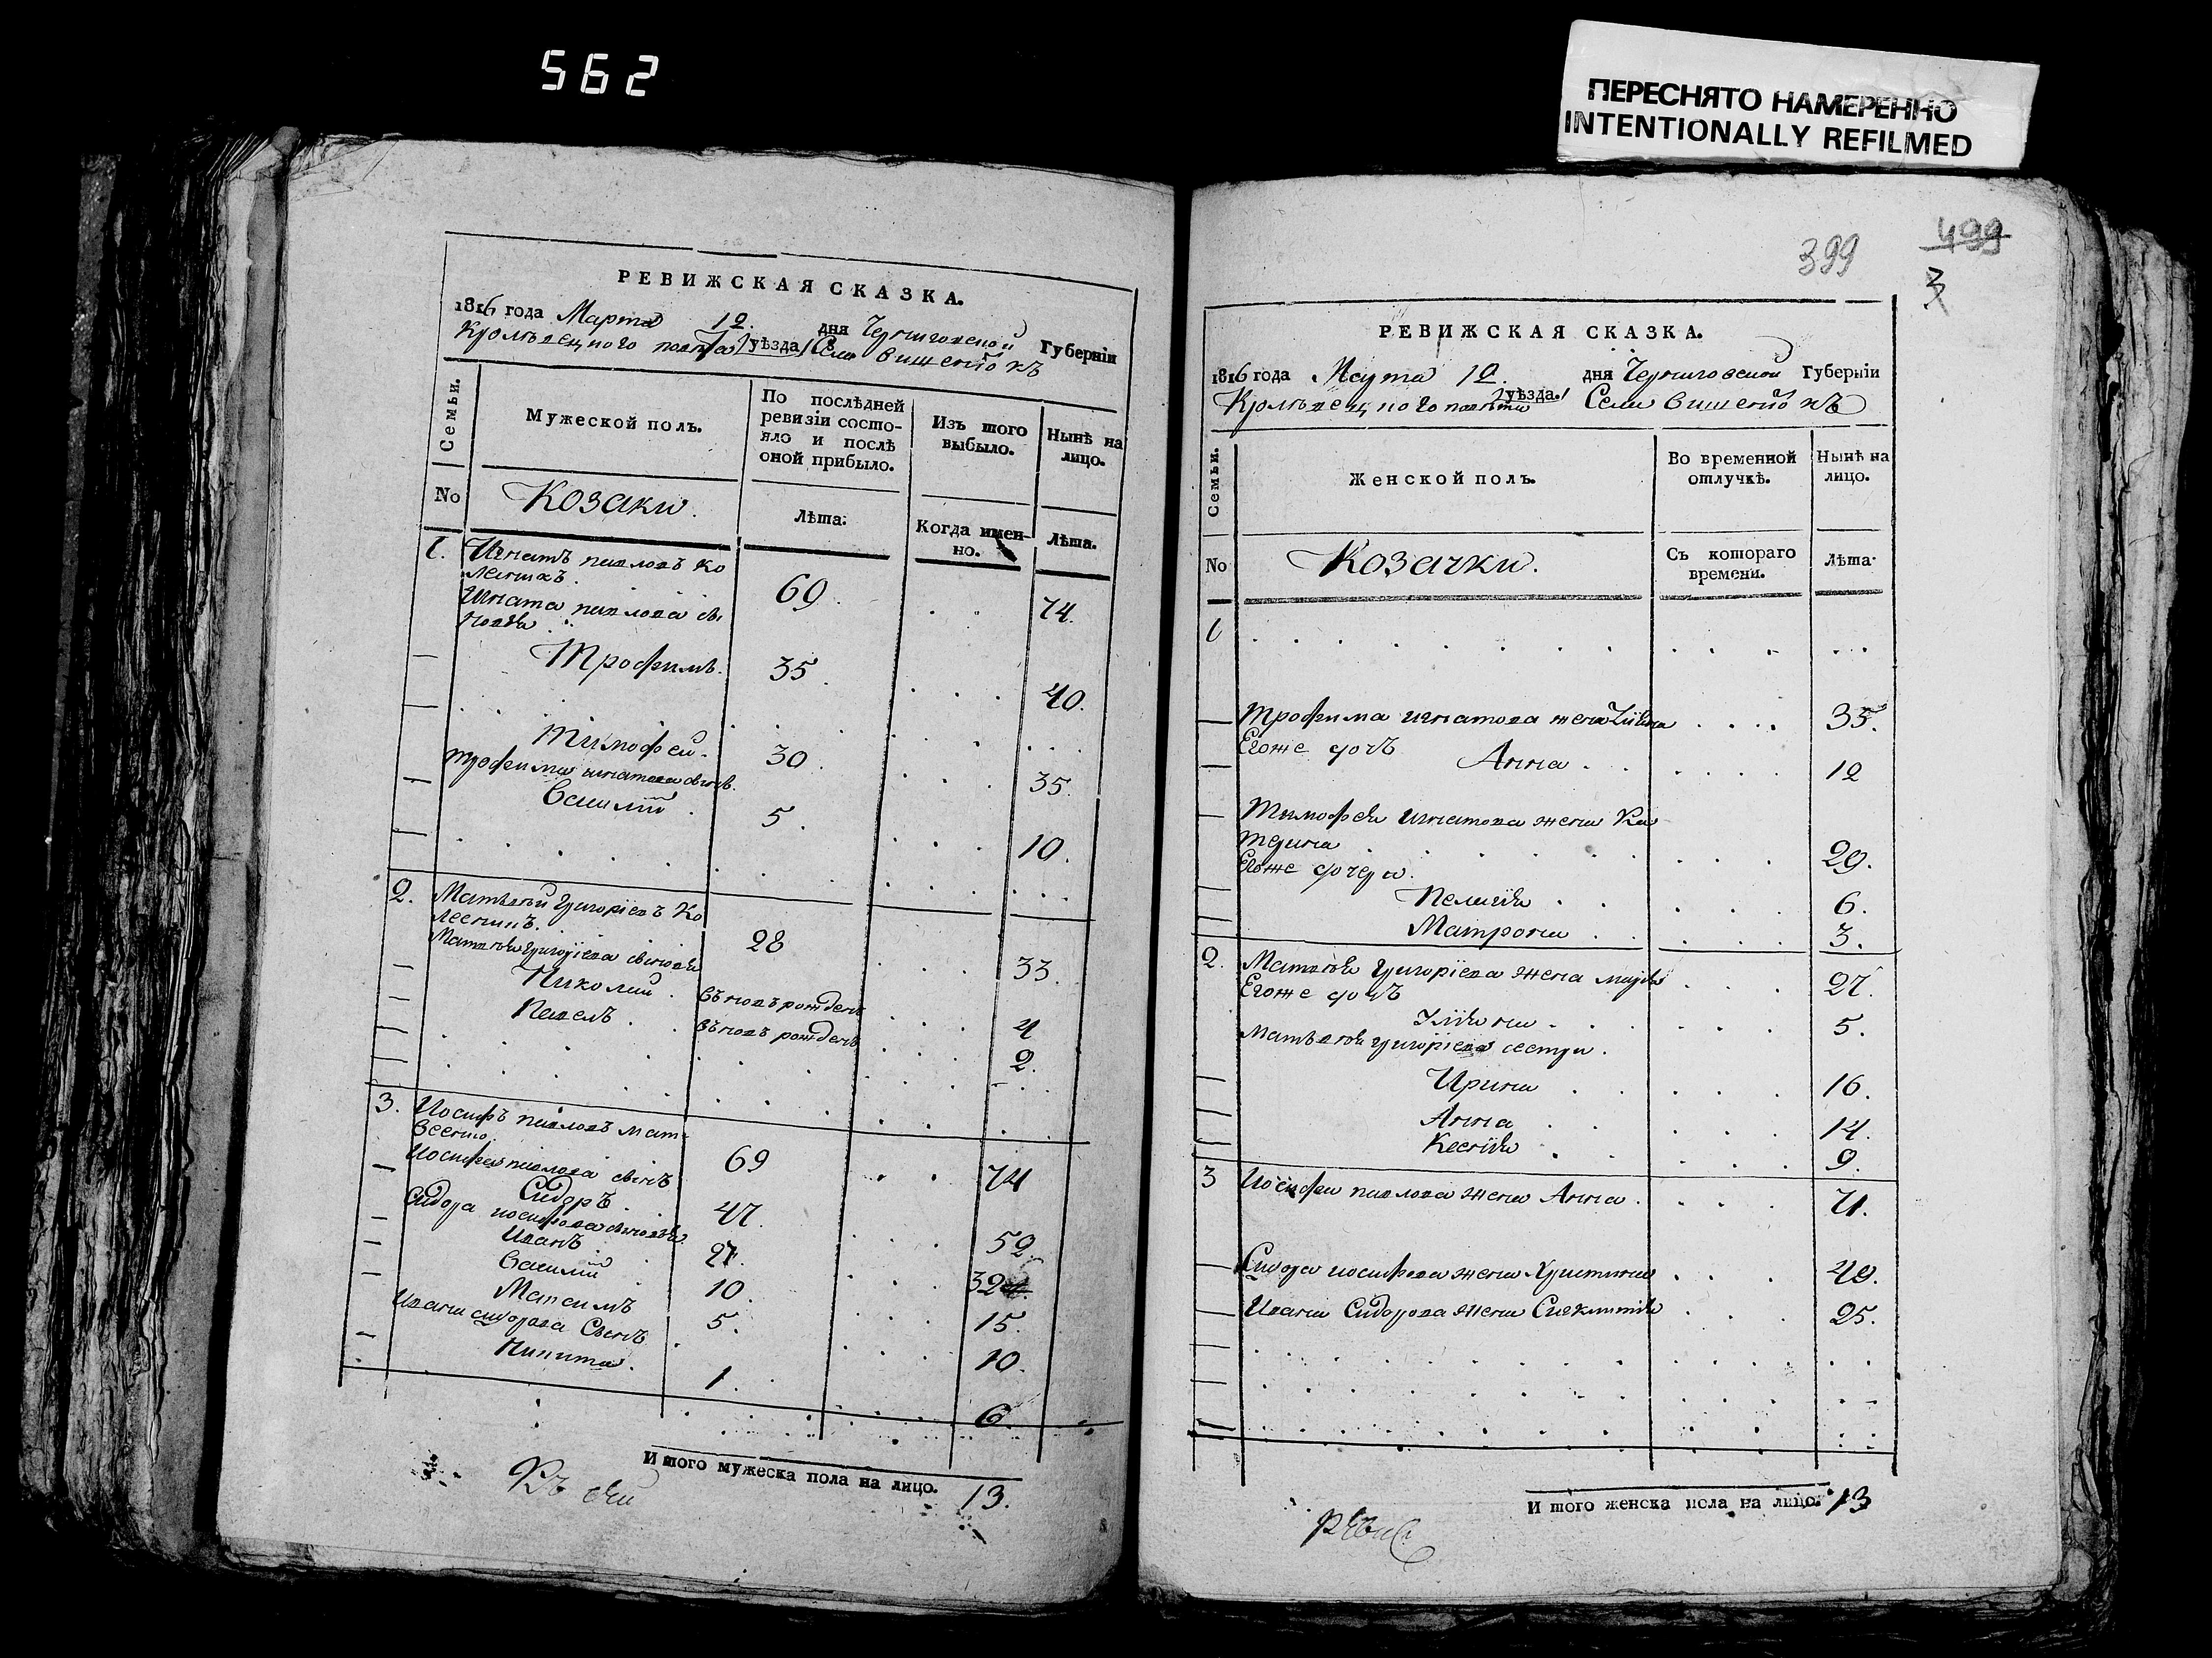 562
ПЕРЕСНЯТО НАМЕРЕННО
INTENTIONALLY REFILMED
РЕВИЖСКАЯ СКАЗКА.
1816 года Марта 12. дня Черниговской Губерніи
Кролевецкого повѣта /уѣзда/ Села Вишенокъ
Семьи.
Мужеской полъ.
По послѣдней ревизіи состояло и послѣ оной прибыло.
Изъ того выбыло.
Нынѣ на лицо.
No
Козаки.
Лѣта.
Когда именно.
Лѣта.
1. Игнатъ павловъ Ко
69. 74.
Игната павлова сы
новья
Трофимъ. 35. 40.
Тимофей. 30. 35.
трофима игнатова сынъ.
Василій. 5. 10.
2. Матвѣй григоріевъ Ко
28 33.
Матвѣя григоріева сыновья
Николай. вѣновъ рожденъ 4
Павелъ. вѣновъ рожденъ 2.
3. Иосифъ павловъ Мат
69 74
Иосифа павлова сынъ
Сидоръ. 47. 52.
Сидора иосифова сыновья
Иванъ 27. 32
Василій 10. 15.
Максимъ 5. 10.
Ивана сидорова Сынъ
Никита. 1. 6.
Итого мужеска пола на лицо. 13.
399
499
3
РЕВИЖСКАЯ СКАЗКА.
1816 года Марта 12. дня Черниговской Губерніи
Кролевецкого повѣта /уѣзда./ Села Вишенокъ
Семьи.
Женской полъ.
Во временной отлучкѣ.
Нынѣ на лицо.
No
Козачки.
Съ котораго времени.
Лѣта.
1
Трофима игнатова жена 35.
Егоже дочь
Анна. 12
Тимофея игнатова жена Ка
терина 29.
Егоже дочери.
Пелагія 6.
Матрона 3.
2. Матвѣя григоріева жена марія 27.
Егоже дочь
Уліяна 5.
Матвѣя григоріева сестры.
Ирина 16.
Анна 14.
Ксенія 9.
3 Иосифа павлова жена Анна. 71.
Сидора иосифова жена Христина 49.
Ивана Сидорова жена 25.
Итого женска пола на лицо. 13